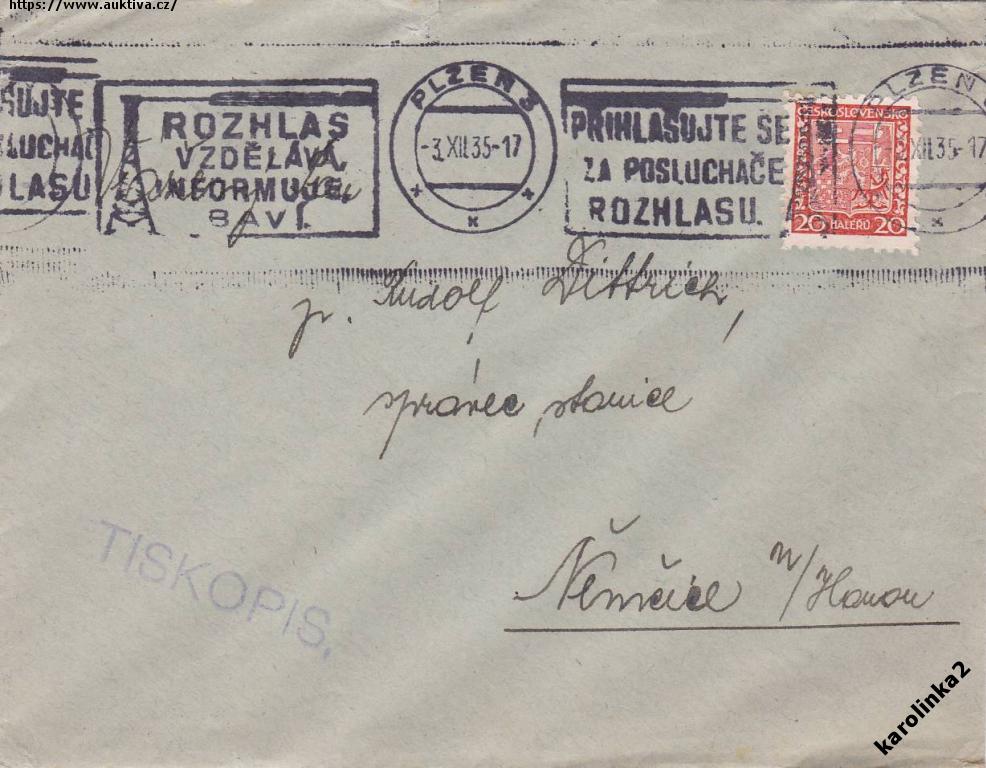 https://www.auktiva.cz/
PLZEŇ 3
PLZEŇ
ŠUJTE
SLUCHAČ
LASU
ROZHLAS
VZDĚLÁVÁ,
INFORMUJE,
BAVÍ.
-3.XII.35-17
PŘIHLAŠUJTE SE
ZA POSLUCHAČE
ROZHLASU.
ČESKOSLOVENSKO
20 HALÉŘŮ 20
XII.35-17
p. Rudolf Dittrich,
správce stanice
Němčice n/Hanou
TISKOPIS.
karolinka2